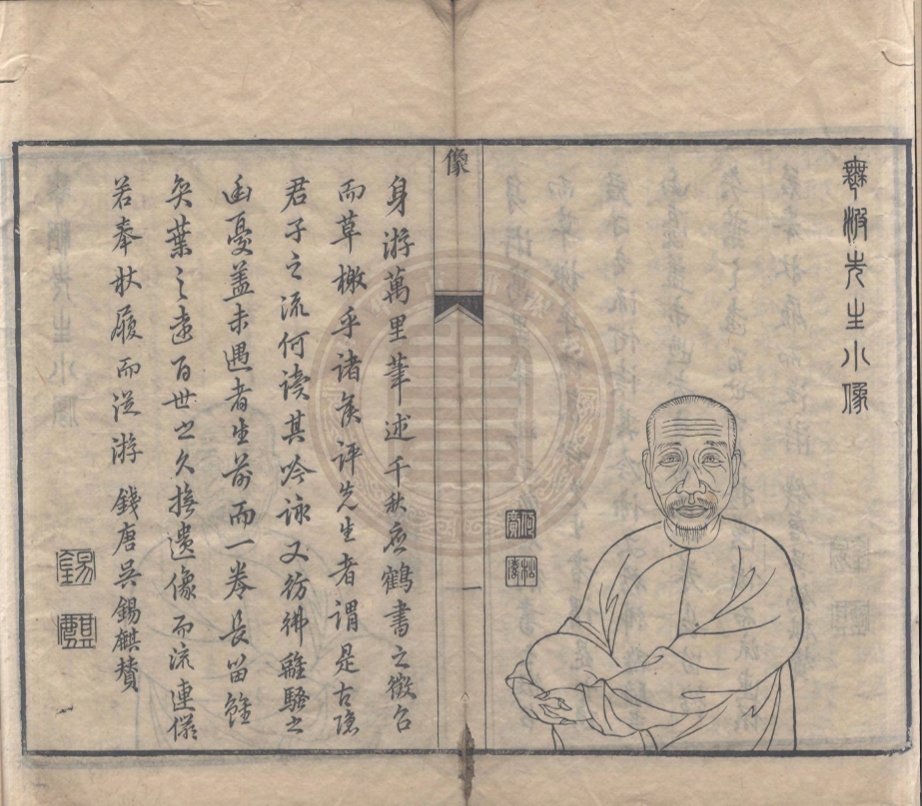 先生小像
像
一
身游萬里筆述千秋應鶴書之徵召
而草檄乎諸侯評先生者謂是古隱
君子之流何讀其吟詠又彷彿離騷之
幽憂蓋未遇者生前而一卷長留雖
奕葉之遠百世之久撫遺像而流連儼
若奉杖履而從游 錢唐吳錫麒贊
錫
麒